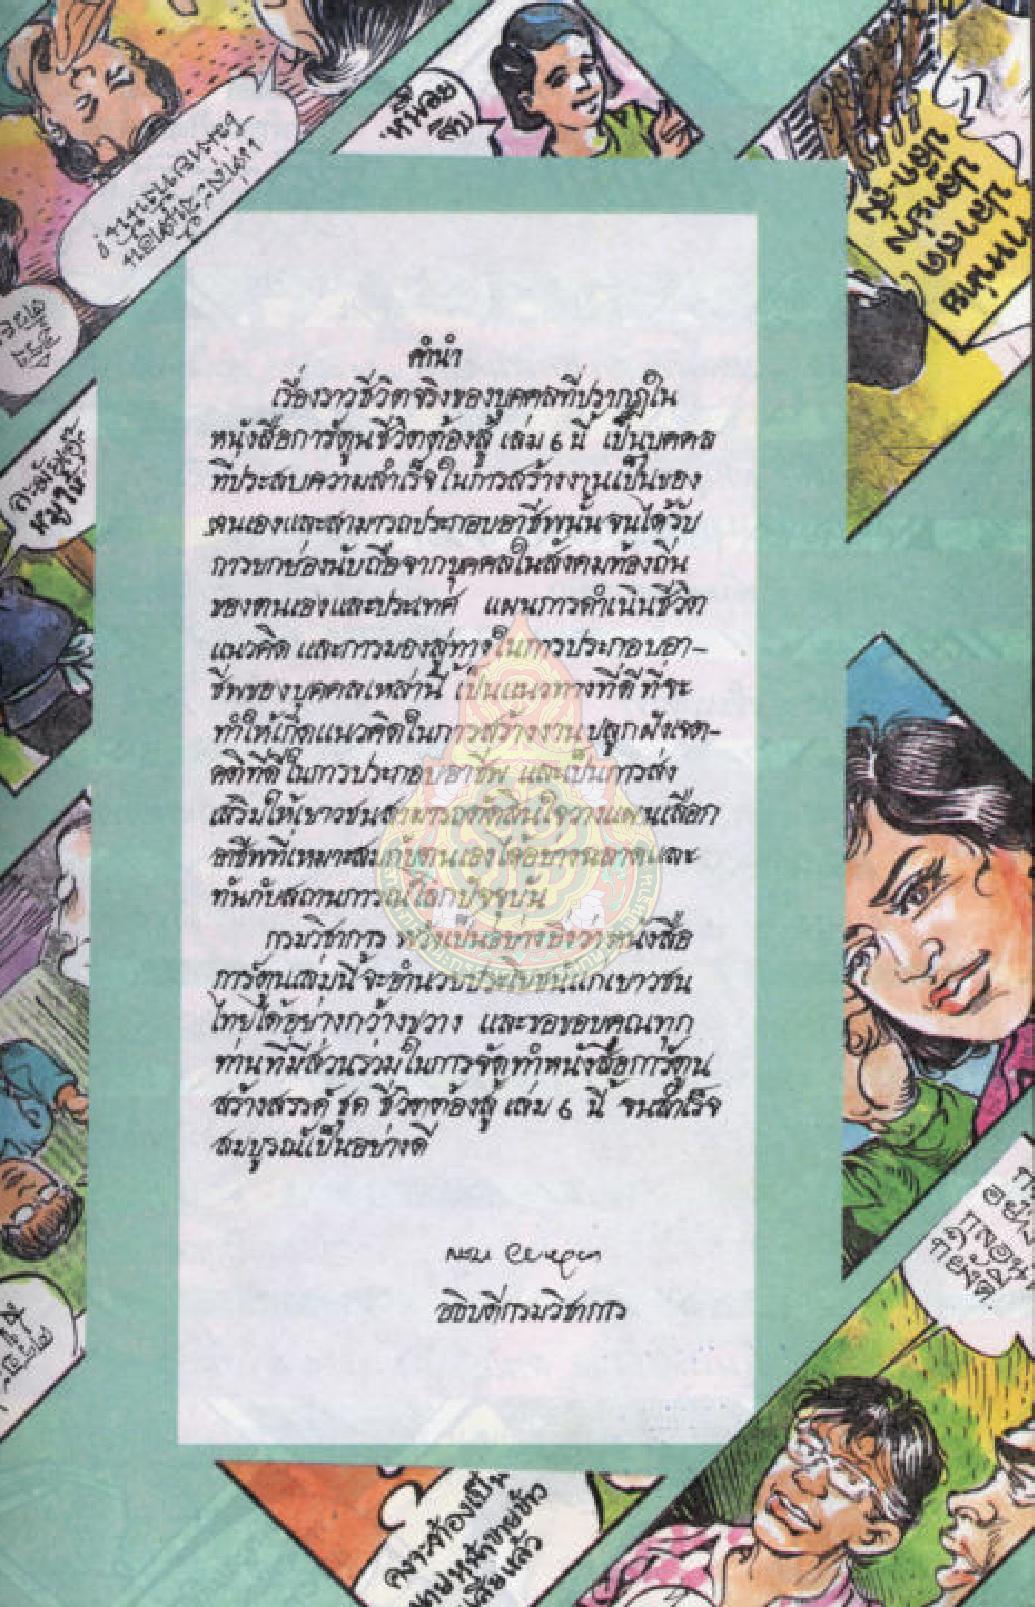 หนีน้อย
สิบ
จำหน่าย
ปลาสด
ปลาย่าง
ปลีก-ส่ง
คำนำ
เรื่องราวชีวิตจริงของบุคคลที่ปรากฏใน
หนังสือการ์ตูนชีวิตต้องสู้ เล่ม 6 นี้ เป็นบุคคล
ที่ประสบความสำเร็จในการสร้างงานเป็นของ
ตนเองและสามารถประกอบอาชีพนั้นจนได้รับ
การยกย่องนับถือจากบุคคลในสังคมท้องถิ่น
ของตนเองและประเทศ แผนการดำเนินชีวิต
แนวคิด และการมองลู่ทางในการประกอบอา-
ชีพของบุคคลเหล่านี้ เป็นแนวทางที่ดีที่จะ
ทำให้เกิดแนวคิดในการสร้างงาน ปลูกฝังเจต-
คติที่ดีในการประกอบอาชีพ และเป็นการส่ง
เสริมให้เยาวชนสามารถตัดสินใจวางแผนเลือก
อาชีพที่เหมาะสมกับตนเองได้อย่างฉลาดและ
ทันกับสถานการณ์โลกปัจจุบัน
กรมวิชาการ หวังเป็นอย่างยิ่งว่าหนังสือ
การ์ตูนเล่มนี้ จะอำนวยประโยชน์แก่เยาวชน
ไทยได้อย่างกว้างขวาง และขอขอบคุณทุก
ท่านที่มีส่วนร่วมในการจัดทำหนังสือการ์ตูน
สร้างสรรค์ ชุด ชีวิตต้องสู้ เล่ม 6 นี้ จนสำเร็จ
สมบูรณ์เป็นอย่างดี
อธิบดีกรมวิชาการ
คงจะต้องเป็น
ขายหน้าขายข้าว
เสียแล้ว